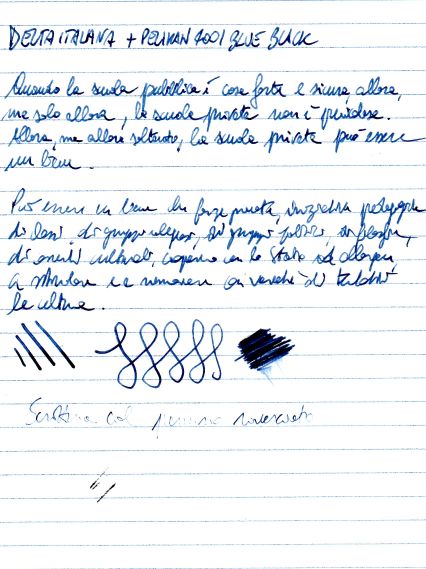 DELTA ITALIANA + PELIKAN 4001 BLUE BLACK
Quando la scuola pubblica è cosa forte e sicura, allora,
ma solo allora, la scuola privata non è pericolosa.
Allora, ma allora soltanto, la scuola privata può essere
un bene.
Può essere un bene che forze private, iniziative pedagogiche
di classi, di gruppi religiosi, di gruppi politici, di filosofie,
di correnti culturali, cooperino con lo Stato ad allargare
a stimolare e a rinnovare con varietà di tentativi
la cultura.
Scrittura col pennino rovesciato